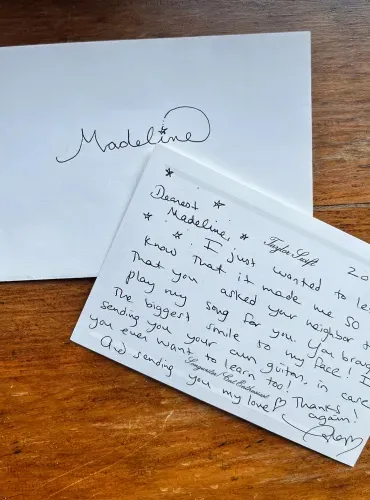 Madeline
Dearest
Madeline,
Taylor Swift
20
I just wanted to le
know that it made me so
that you asked your neighbor t
play my song for you. You broug
the biggest smile to my face! I
sending you your own guitar, in case
you ever want to learn too!
And sending you my love♡ Thanks!
again!
Songwriter/Cat Enthusiast